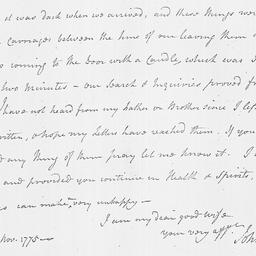 it was dark when we arrived, and these things wer
Carriages between the time of our leaving them
coming to the Door with a Candle, which was
two minutes – our Search & Inquiries proved fr
I have not heard from my Father or Brother since I lef
written, & hope my Letters have reached them. If you
any thing of them pray let me know it. I
and provided you continue in Health & Spirits,
can make very unhappy —
I am my dear good wife
your very
Nov. 1775 — Joh